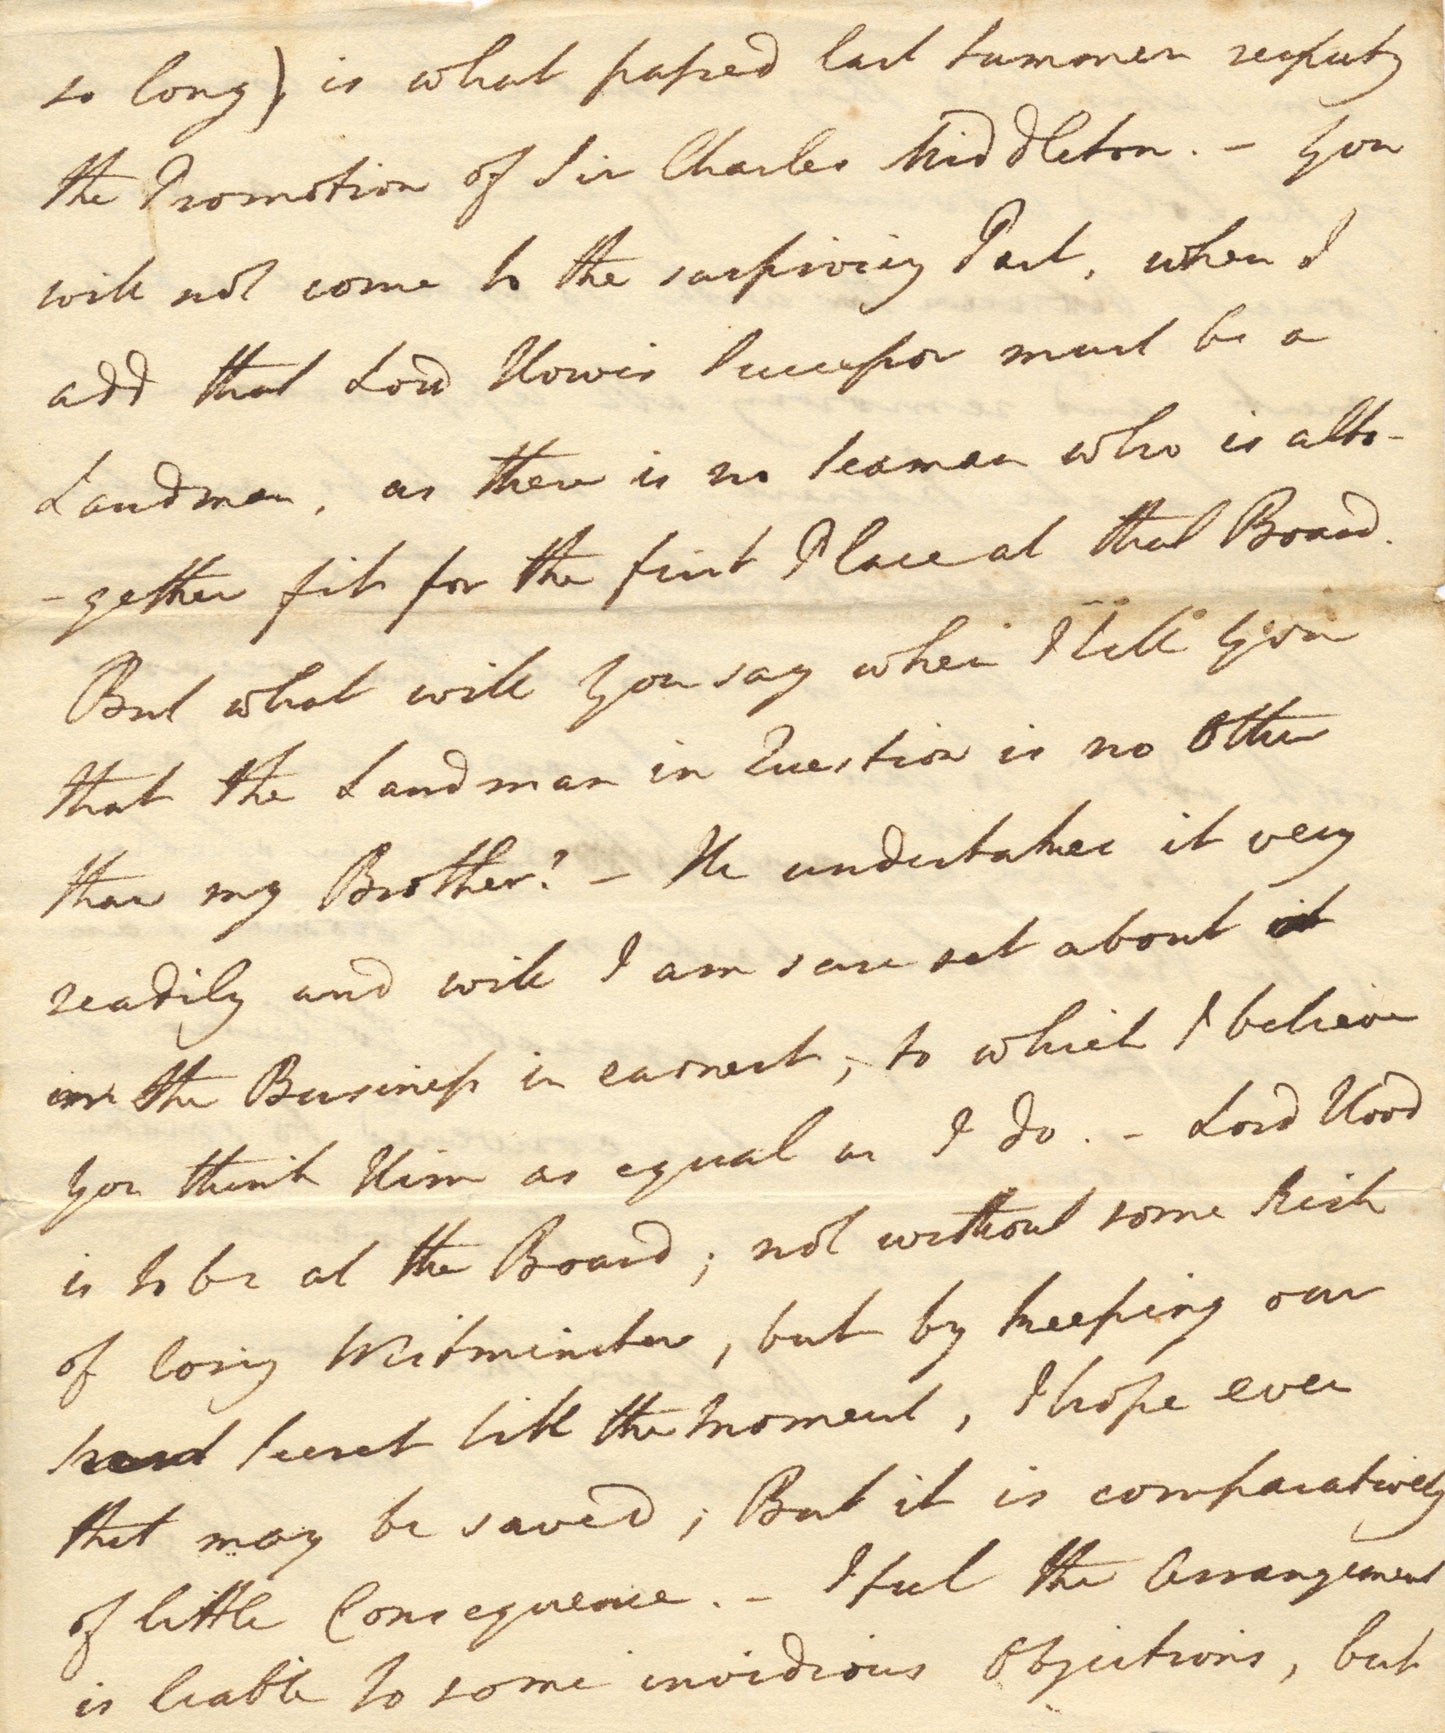 so long) is what passed last Summer respectg
the Promotion of Sir Charles Middleton. – You
will not come to the surprising Part, when I
add that Lord Howe's Successor must be a
Landman, as there is no Seaman who is alto-
-gether fit for the first Place at that Board.
But what will You say when I tell You
that the Landman in Question is no Other
than my Brother? – He undertakes it very
readily and will I am sure set about
the Business in earnest, to which I believe
You think Him as equal as I do. – Lord Hood
is to be at the Board; not without some Risk
of losing Westminster, but by keeping our
Secret till the Moment, I hope even
that may be saved; But it is comparatively
of little Consequence. – I feel the Arrangement
is liable to some invidious Objections, but